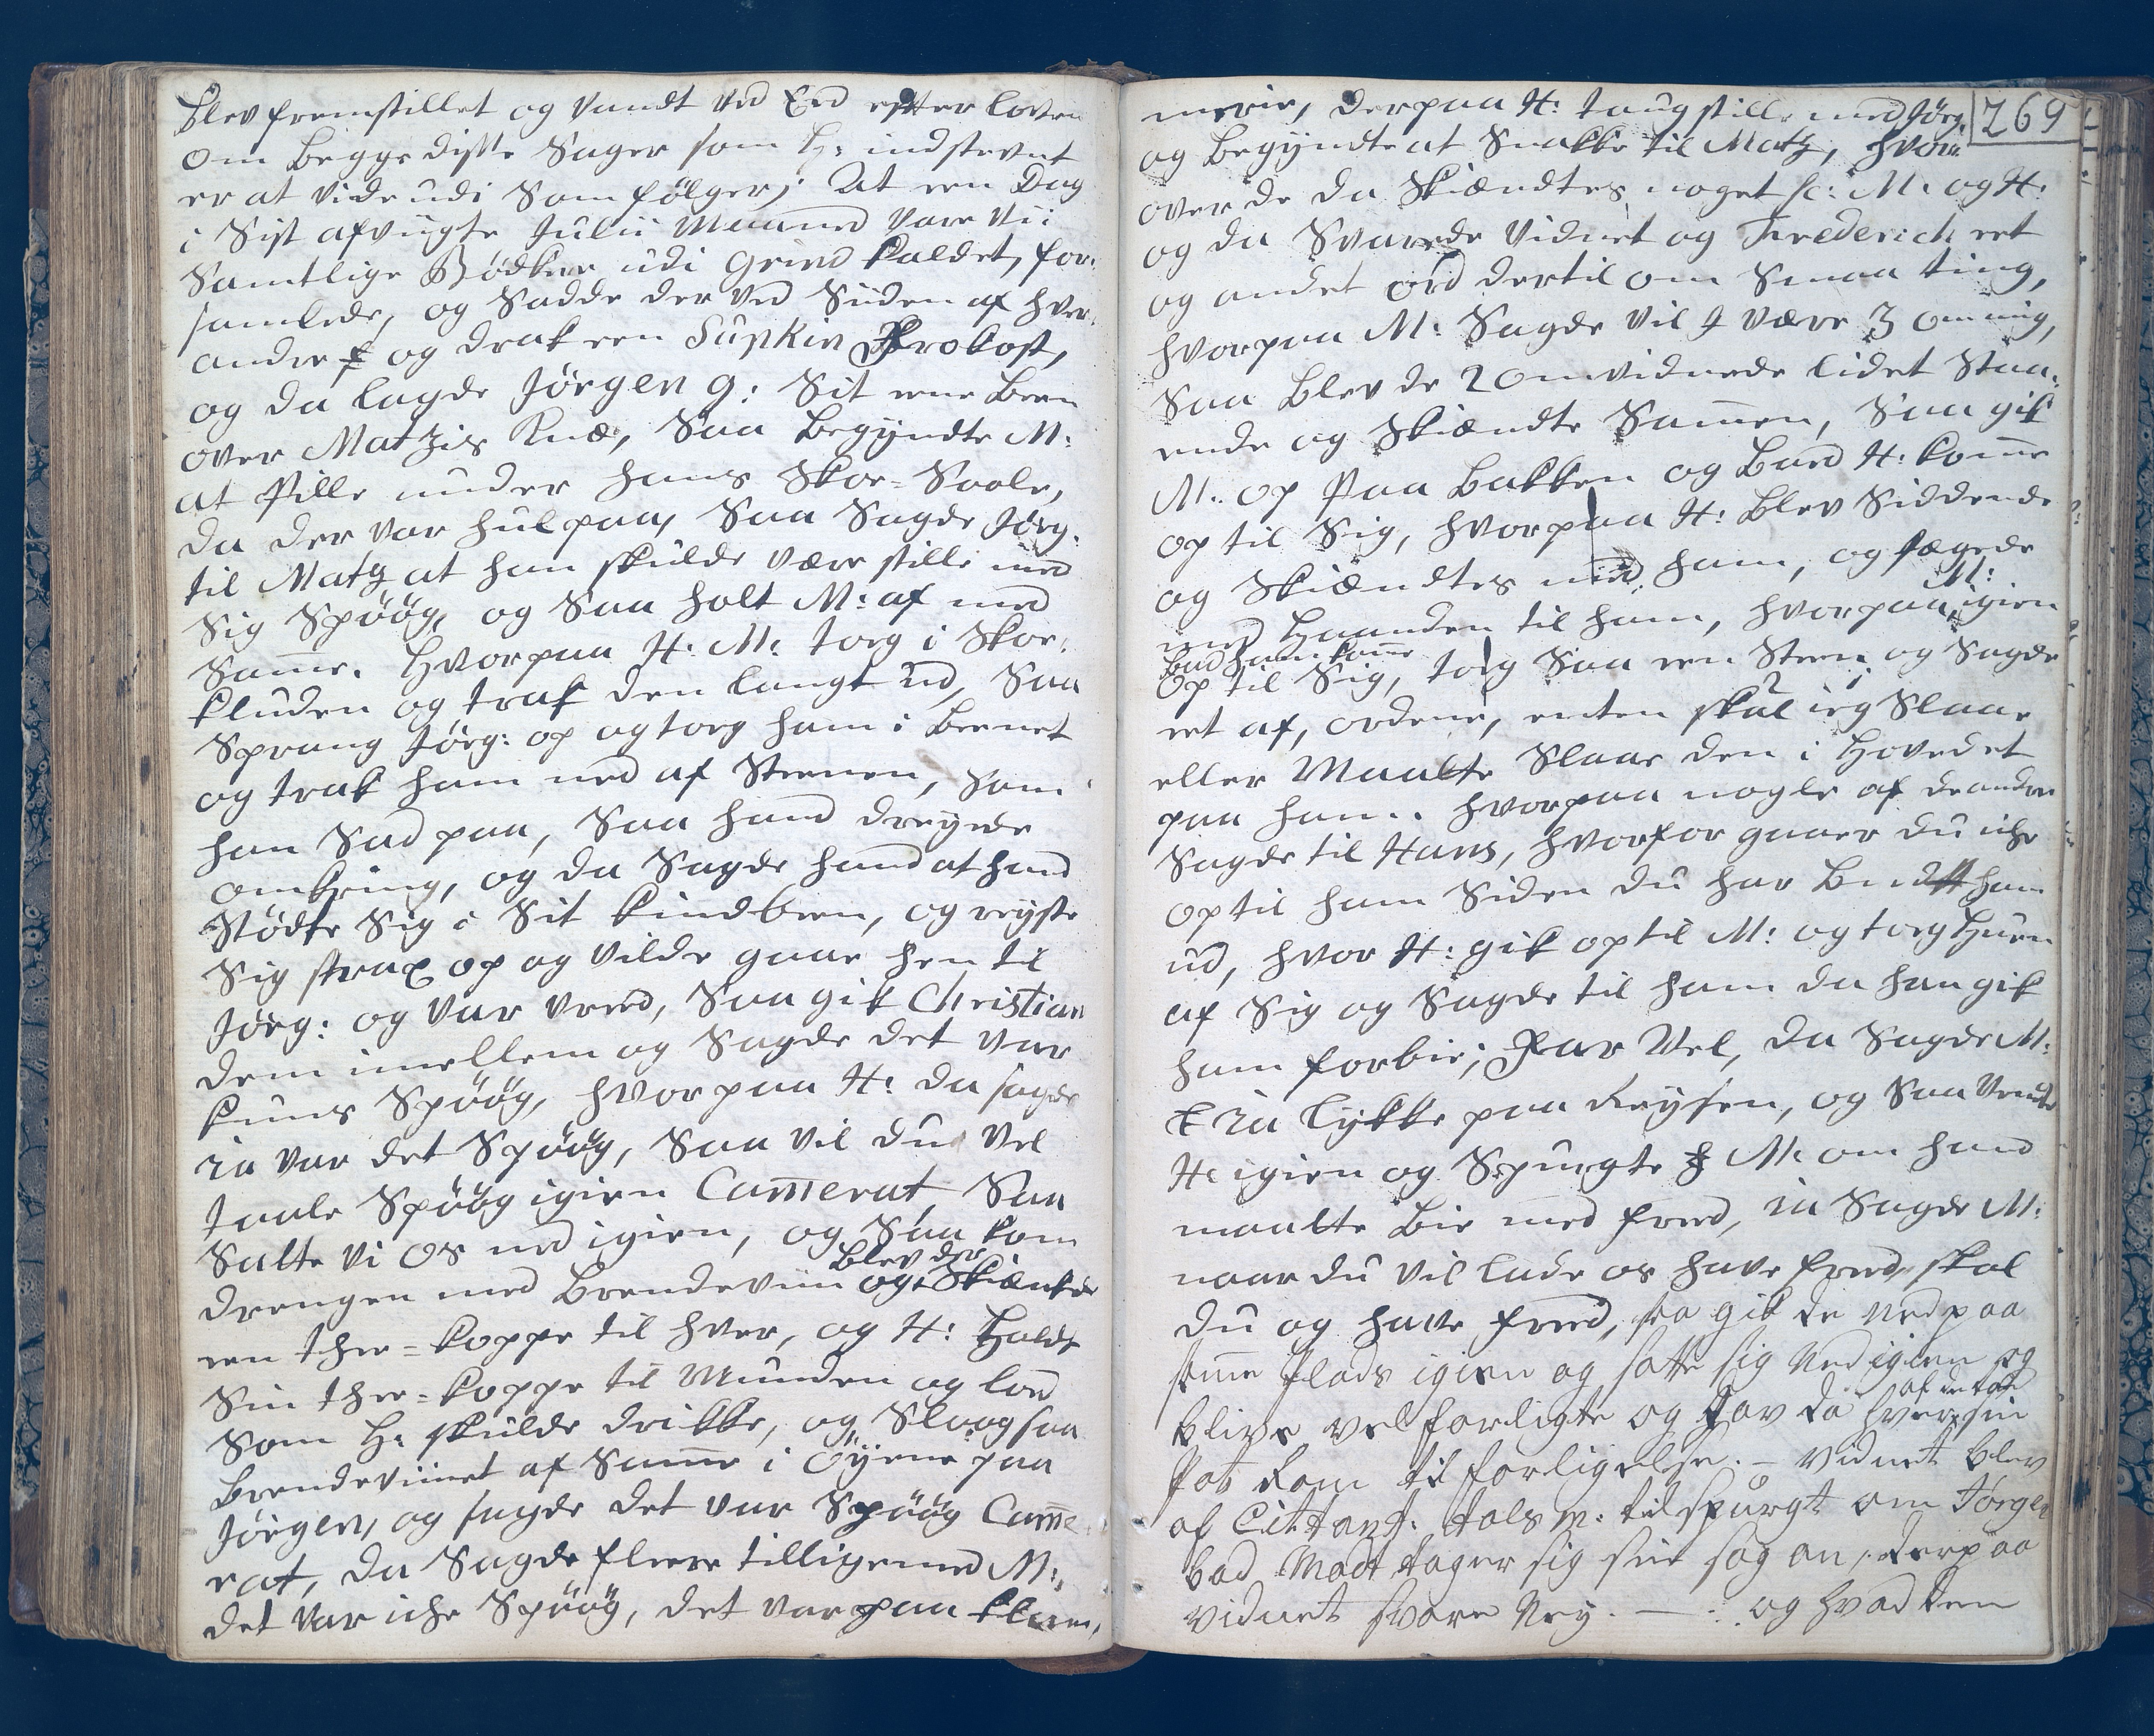 blev fremstillet og vandt ved Eed efter loven
om begge disse Sager som H: indstevnt
er at vide udi Som følger; At een Dag
i Sist afvigte Julii Maaned vare vii
Samtlige Bødker udi Grind kaldet, for-
samlede, og Sadde der ved Siiden af hver-
andre og drak een Supkin Frokost,
og da lagde Jörgen G: Sit eene Been
over Matzis Knæ, Saa begyndte M:
at Pille under hans Skoe=Soole,
da der var hul paa, Saa Sagde Jörg.
til Matz at han skulde være stille med
Sig Spöög, og Saa holt M: af med
Samme. Hvorpaa H. M: tog i Skoe-
kluden og trak den langt ud, Saa
Sprang Jörg: op og tog ham i beenet
og trak ham ned af Steenen, som
han Sad paa, Saa hand dreyede
omkring, og da Sagde hand at hand
Stödte Sig i Sit kindbeen, og reyste
Sig strax op og vilde gaae hen til
Jörg: og var vreed, Saa gik Christian
dem imellem og Sagde det var
kuns Spöög, hvorpaa H: da sagde
ia var det Spöög, Saa vil du vel
taale Spöög igien Cammerat, Saa
Satte vi os ned igien, og Saa kom
blev der
drengen med Brendeviin og Skiænkede
een thee=koppe til hver, og H: holdt
Sin thee=koppe til Munden og lod
Som H: skulde drikke, og Sloog saa
Brendeviinet af Samme i Öyene paa
Jörgen, og sagde det var Spöög Camme-
rat, da Sagde fleere tilligemed M:,
det var iche Spöög, det var paa klam,
269
merie, derpaa H: taug stille med Jörg.
og begyndte at Snakke til Matz, hvor-
over de da Skiændtes noget sc: M: og H:
og da Svarede Vidnet og Frederich eet
og andet ord dertil om Smaa ting,
hvorpaa M: Sagde vil I være 3 om mig,
Saa blev de 2 omvidnede lidet Staa-
ende og Skiændte Sammen, Saa gik
M: op paa bakken og bad H: komme
op til Sig, hvorpaa H: blev Siddende
og Skiændtes med ham, og pægede
M:
med Haanden til ham, hvorpaa igien
bad ham komme
op til Sig, tog Saa een Steen og Sagde
eet af, 2 ordene, enten skal ieg Slaae
eller Maatte Slaae den i Hovedet
paa ham. hvorpaa nogle af de andre
Sagde til Hans, hvorfor gaaer du iche
op til ham Siden du har budt ham
ud, hvor H: gik op til M: og tog Huen
af Sig og Sagde til ham da han gik
ham forbie; Far Vel, da Sagde M:
ia lykke paa Reysen, og Saa vendte
H: igien og Spurgte M: om hand
maatte bie med fred, ia Sagde M:
naar du vil lade os have fred, skal
du og have fred, saa gik de ned paa
samme Plads igien og satte sig ned igien og
af de to
blive vel forligte og gav da hver sin
Pot Rom til forligelse. – Vidnet blev
af Citant: tilspurgt om Jörgen
bad Madt tager sig sin sag an, derpaa
vidnet svare Ney. — : og hvad den